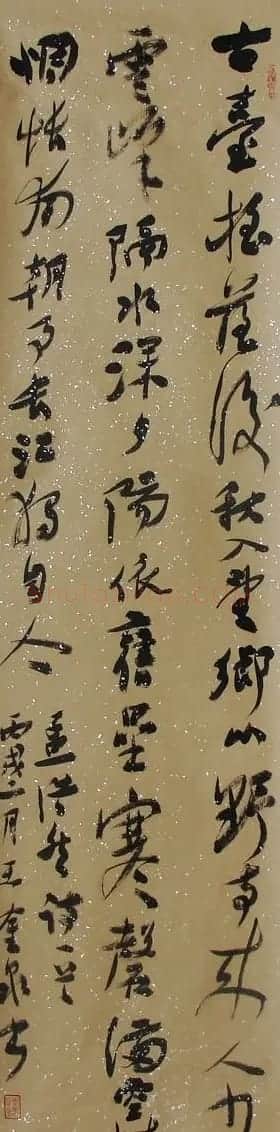 古臺摇落後秋入望鄉心野寺来人少
雲峰隔水深夕陽依舊壘寒磬滿空
惆悵南朝事長江獨自今
孟浩然詩一首
丙戌二月王奎泉书